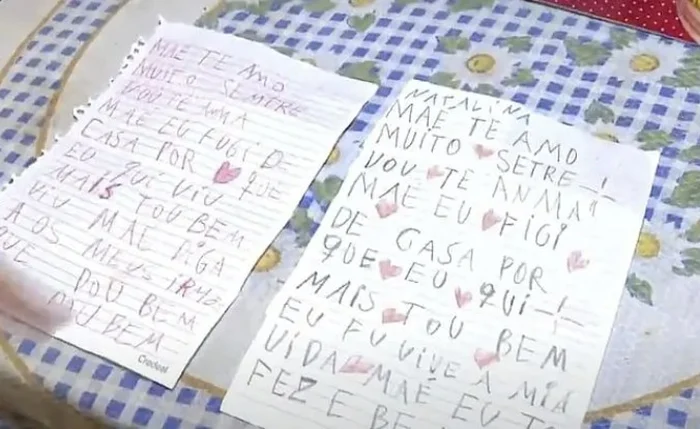 MÃE TE AMO
MUITO SEMTRE
VOU TE AMA
MÃE EU FUGI DE
CASA POR QUE
EU QUI VIU
MAIS TOU BEM
VIU MÃE DIGA
A OS MEUS
QUE DOU BEM
DOU BEM
Credeal
NATALINA
MÃE TE AMO
MUITO SETRE
VOU TE ANMA
MÃE EU FIGI
DE CASA POR
QUE EU QUI
MAIS TOU BEM
EU FU VIVE A MIA
VIDA MAÉ EU TO
FEZ E BE